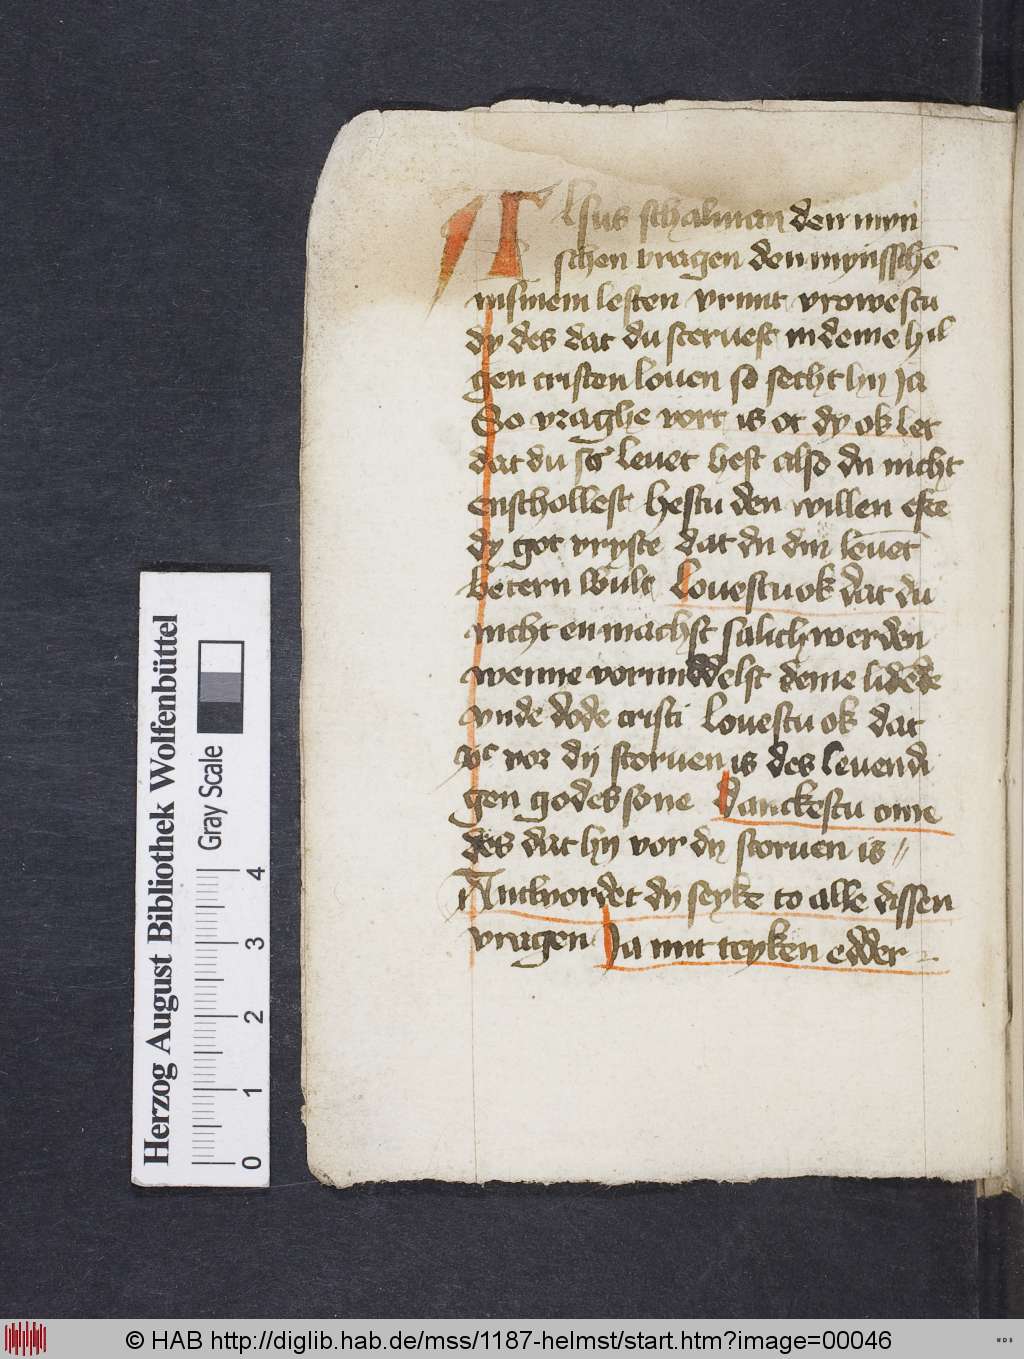 Alsus schalman den myn
schen vragen den mynsschē
in sinem lesten vrunt vrowestu
dy des dat du steruest in deme hil
gen cristen louen so secht hy Ja
So vraghe vort is ot dy ok let
dat du so leuet hest also du nicht
enschollest hestu den willen efte
dy got vryste dat du din leuēt
betern wult Louestu ok dat du
nicht en machst salich werden
wenne vormiddelst deme lidēde
vnde dode cristi louestu ok dat
vor dy storuen is des leuendi
gen godes sone Danckestu ome
des dat hy vor dy storuen is //
Antwordet dy seyke to alle dissen
vragen Ja mit teyken edder
Herzog August Bibliothek Wolfenbüttel
Gray Scale
0 1 2 3 4
© HAB http://diglib.hab.de/mss/1187-helmst/start.htm?image=00046